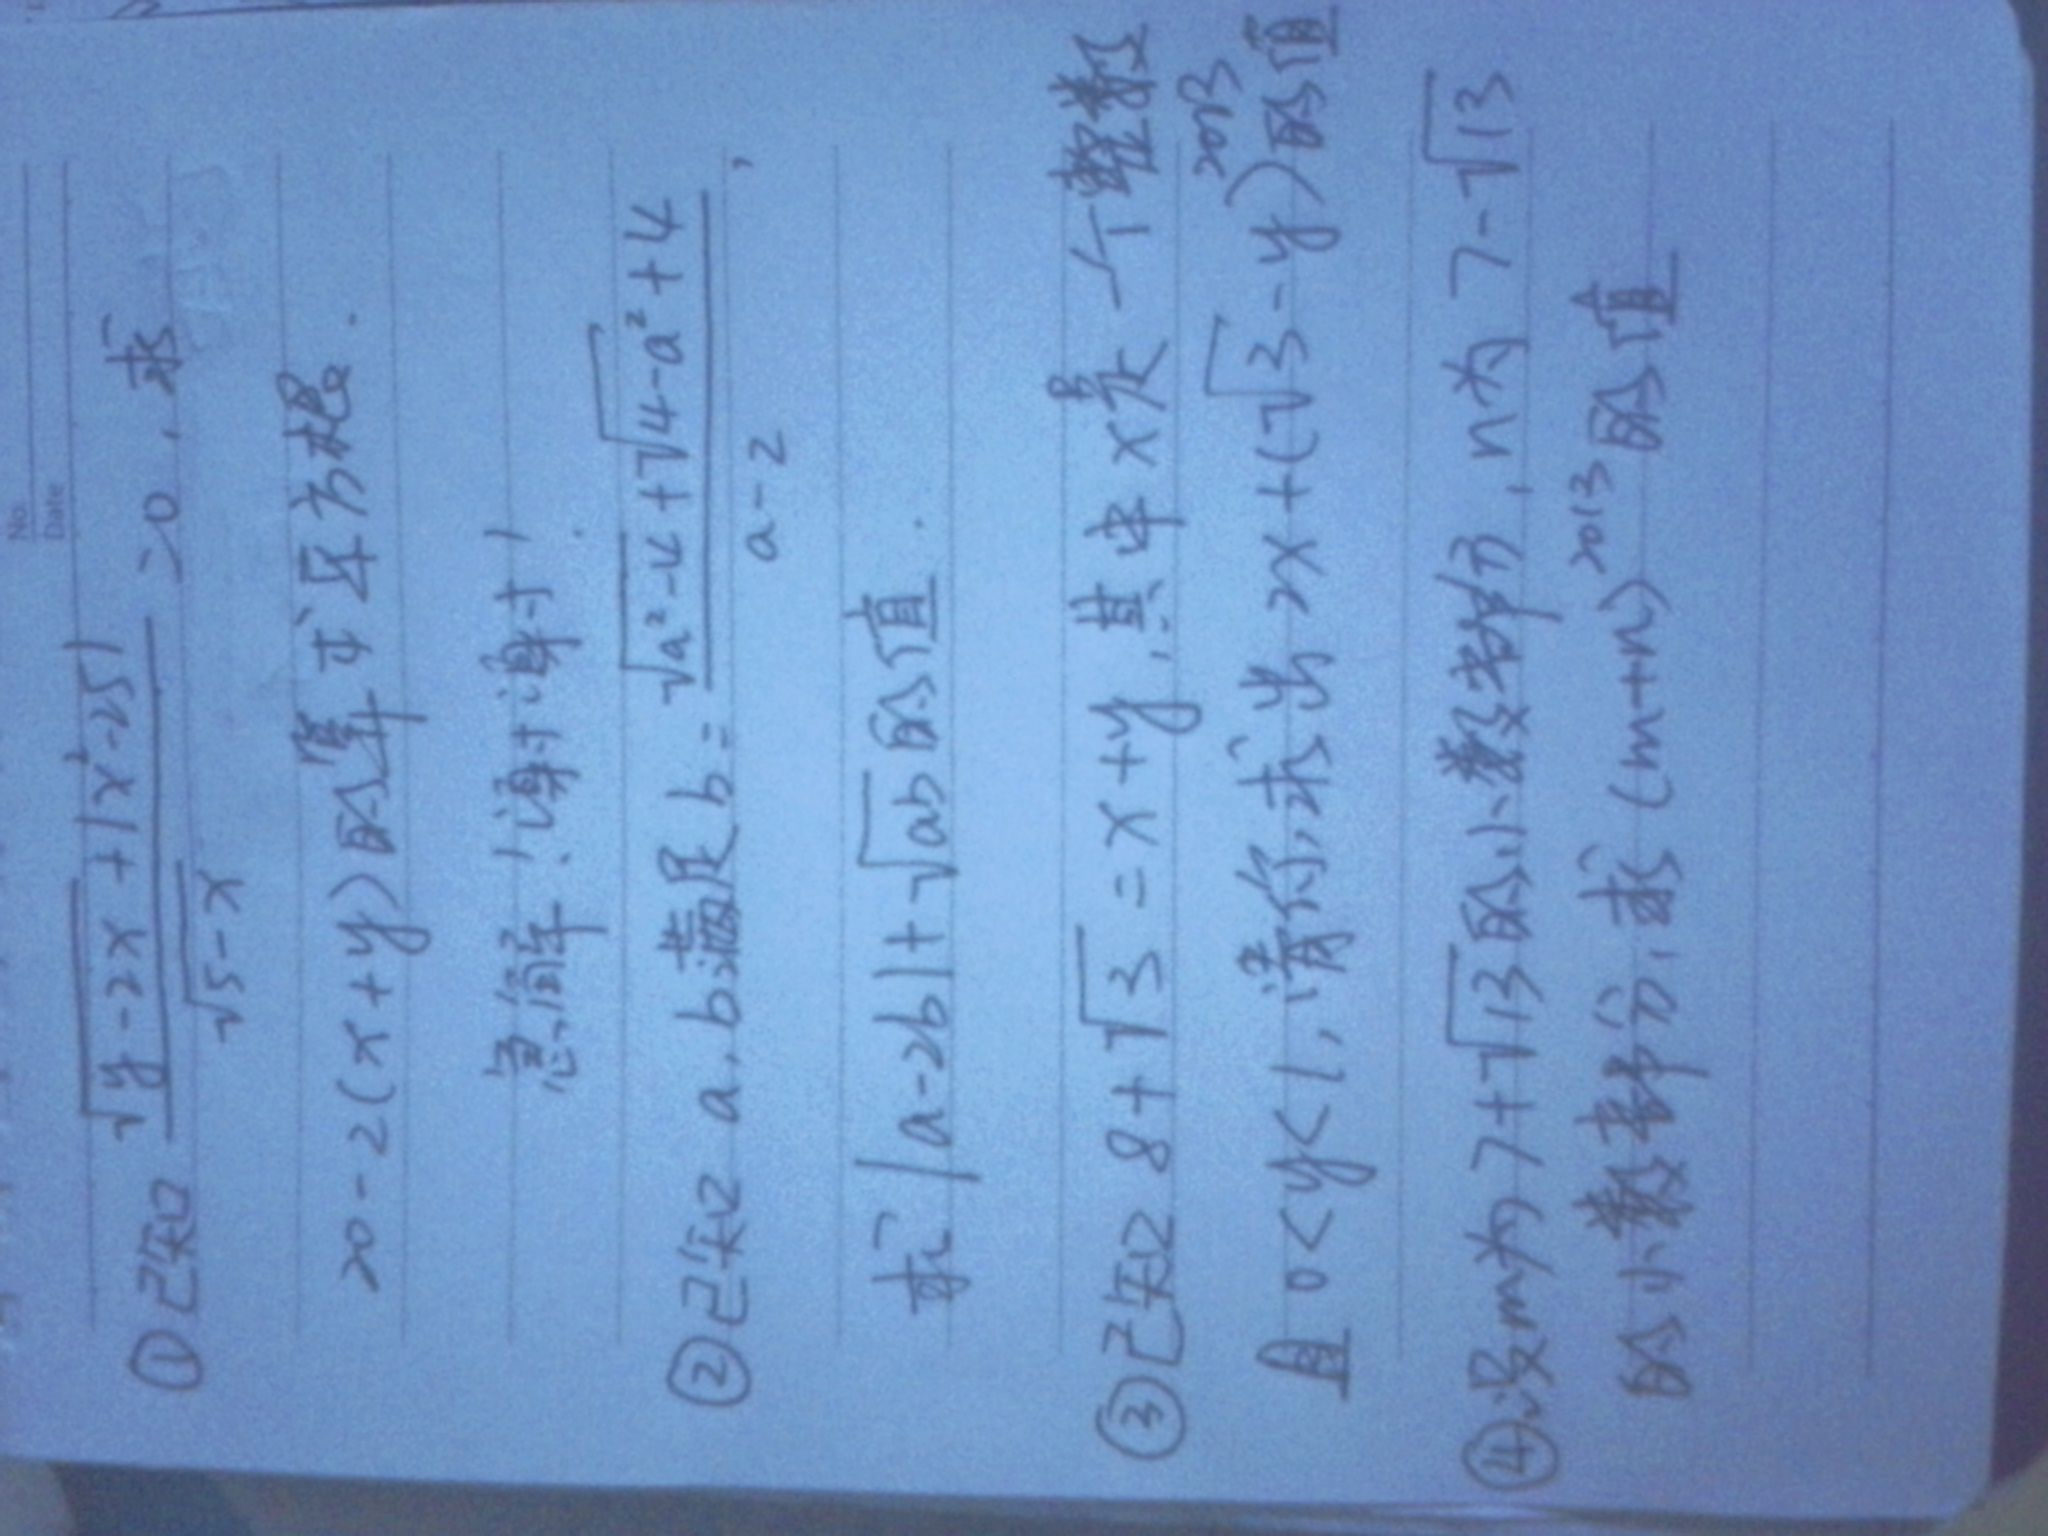 No.
Date
①已知 (√(y-2x) + |x²-25|)/√(5-x) =0，求
20-2(x+y)的算术平方根.
急解！谢谢！
②已知 a，b满足 b = (√(a²-4) + √(4-a²) + 4)/(a-2)，
求|a-2b|+√ab的值.
③已知 8+√3=x+y，其中x是一个整数
且0<y<1，请你求出2x+(√3-y)²⁰¹³的值
④设m为7+√13的小数部分，n为7-√13
的小数部分，求(m+n)²⁰¹³的值